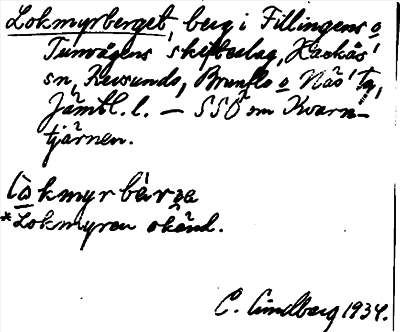 Lokmyrberget, berg i Fillingens o
Tunvågens skifteslag, Hackås'
sn, Revsunds, Brunflo o Näs' tg,
Jämtl. l. — SSÖ om Kvarn-
tjärnen.
*Lokmyren okänd.
C. Lindberg 1934.